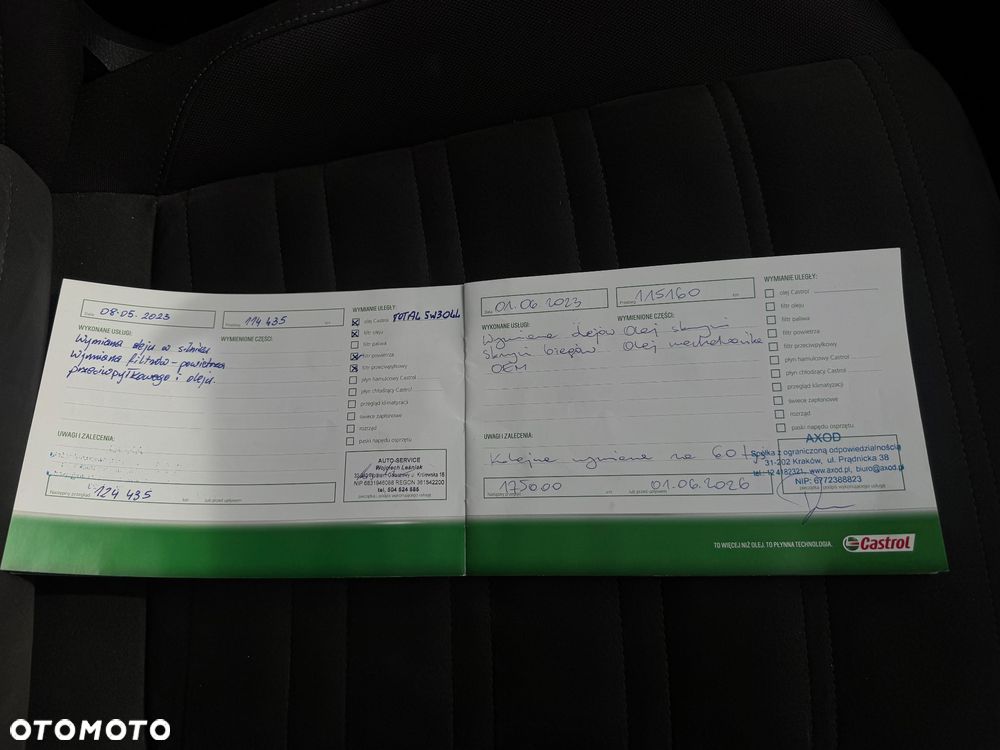 Data 08.05.2023
Przebieg 114 435 km
WYMIANIE ULEGŁY:
olej Castrol TOTAL 5W30LL
filtr oleju
filtr paliwa
filtr powietrza
filtr przeciwpyłkowy
płyn hamulcowy Castrol
płyn chłodzący Castrol
przegląd klimatyzacji
świece zapłonowe
rozrząd
paski napędu osprzętu
WYKONANE USŁUGI:
WYMIENIONE CZĘŚCI:
Wymiana oleju w silniku
Wymiana filtrów - powietrza
przeciwpyłkowego i oleju.
UWAGI I ZALECENIA:
Następny przegląd: 124 435 km lub przed upływem:
AUTO-SERVICE
Wojciech Leśniak
NIP 6831946088 REGON 361842200
tel. 504 524 885
pieczątka i podpis wykonującego usługę
Data 01.06.2023
Przebieg 115160 km
WYMIANIE ULEGŁY:
olej Castrol
filtr oleju
filtr paliwa
filtr powietrza
filtr przeciwpyłkowy
płyn hamulcowy Castrol
płyn chłodzący Castrol
przegląd klimatyzacji
świece zapłonowe
rozrząd
paski napędu osprzętu
WYKONANE USŁUGI:
WYMIENIONE CZĘŚCI:
Wymiana olejów Olej skrzyni
skrzyni biegów Olej mechatronika
OEM
UWAGI I ZALECENIA:
Kolejna wymiana za 60
Następny przegląd: 175000 km lub przed upływem: 01.06.2026
AXOD
Spółka z ograniczoną odpowiedzialnością
31-202 Kraków, ul. Prądnicka 38
www.axod.pl, biuro@axod.pl
NIP: 6772388823
pieczątka i podpis wykonującego usługę
TO WIĘCEJ NIŻ OLEJ. TO PŁYNNA TECHNOLOGIA.
Castrol
OTOMOTO